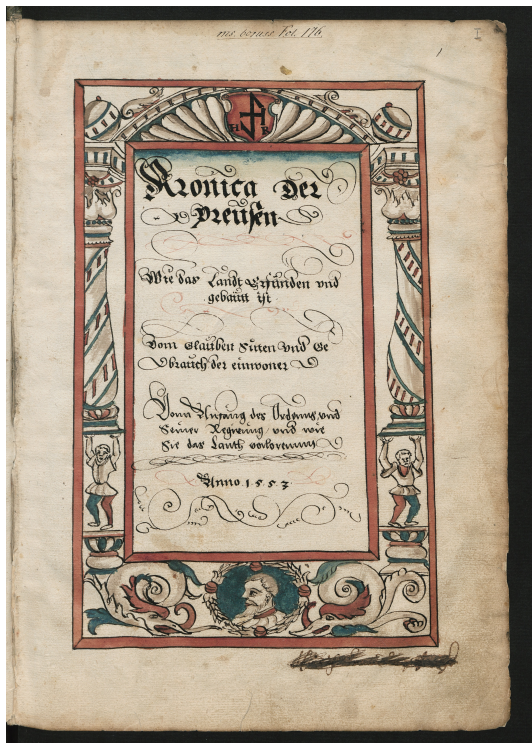 ms. boruss. Fol. 176
I
1
H R
Kronica Der
Preusen
Wie das Landt Erfunden vnd
gebautt ist
Vom Glauben Sitten vnd Ge
brauch der einwoner
Vom Anfang des Ordenns vnd
Seiner Regirung vnd wie
Sie das Landt vorlorenn
Anno 1553